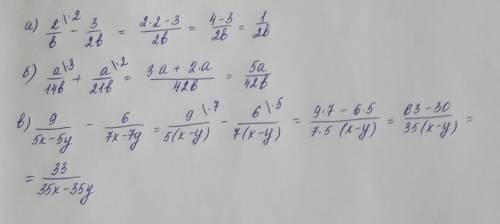 а) 2\·2/b - 3/2b = (2·2-3)/2b = (4-3)/2b = 1/2b
б) a\·3/14b + a\·2/21b = (3·a + 2·a)/42b = 5a/42b
в) 9/(5x-5y) - 6/(7x-7y) = 9\·7/5(x-y) - 6\·5/7(x-y) = (9·7 - 6·5)/7·5 (x-y) = (63-30)/35(x-y) =
= 33/(35x-35y)